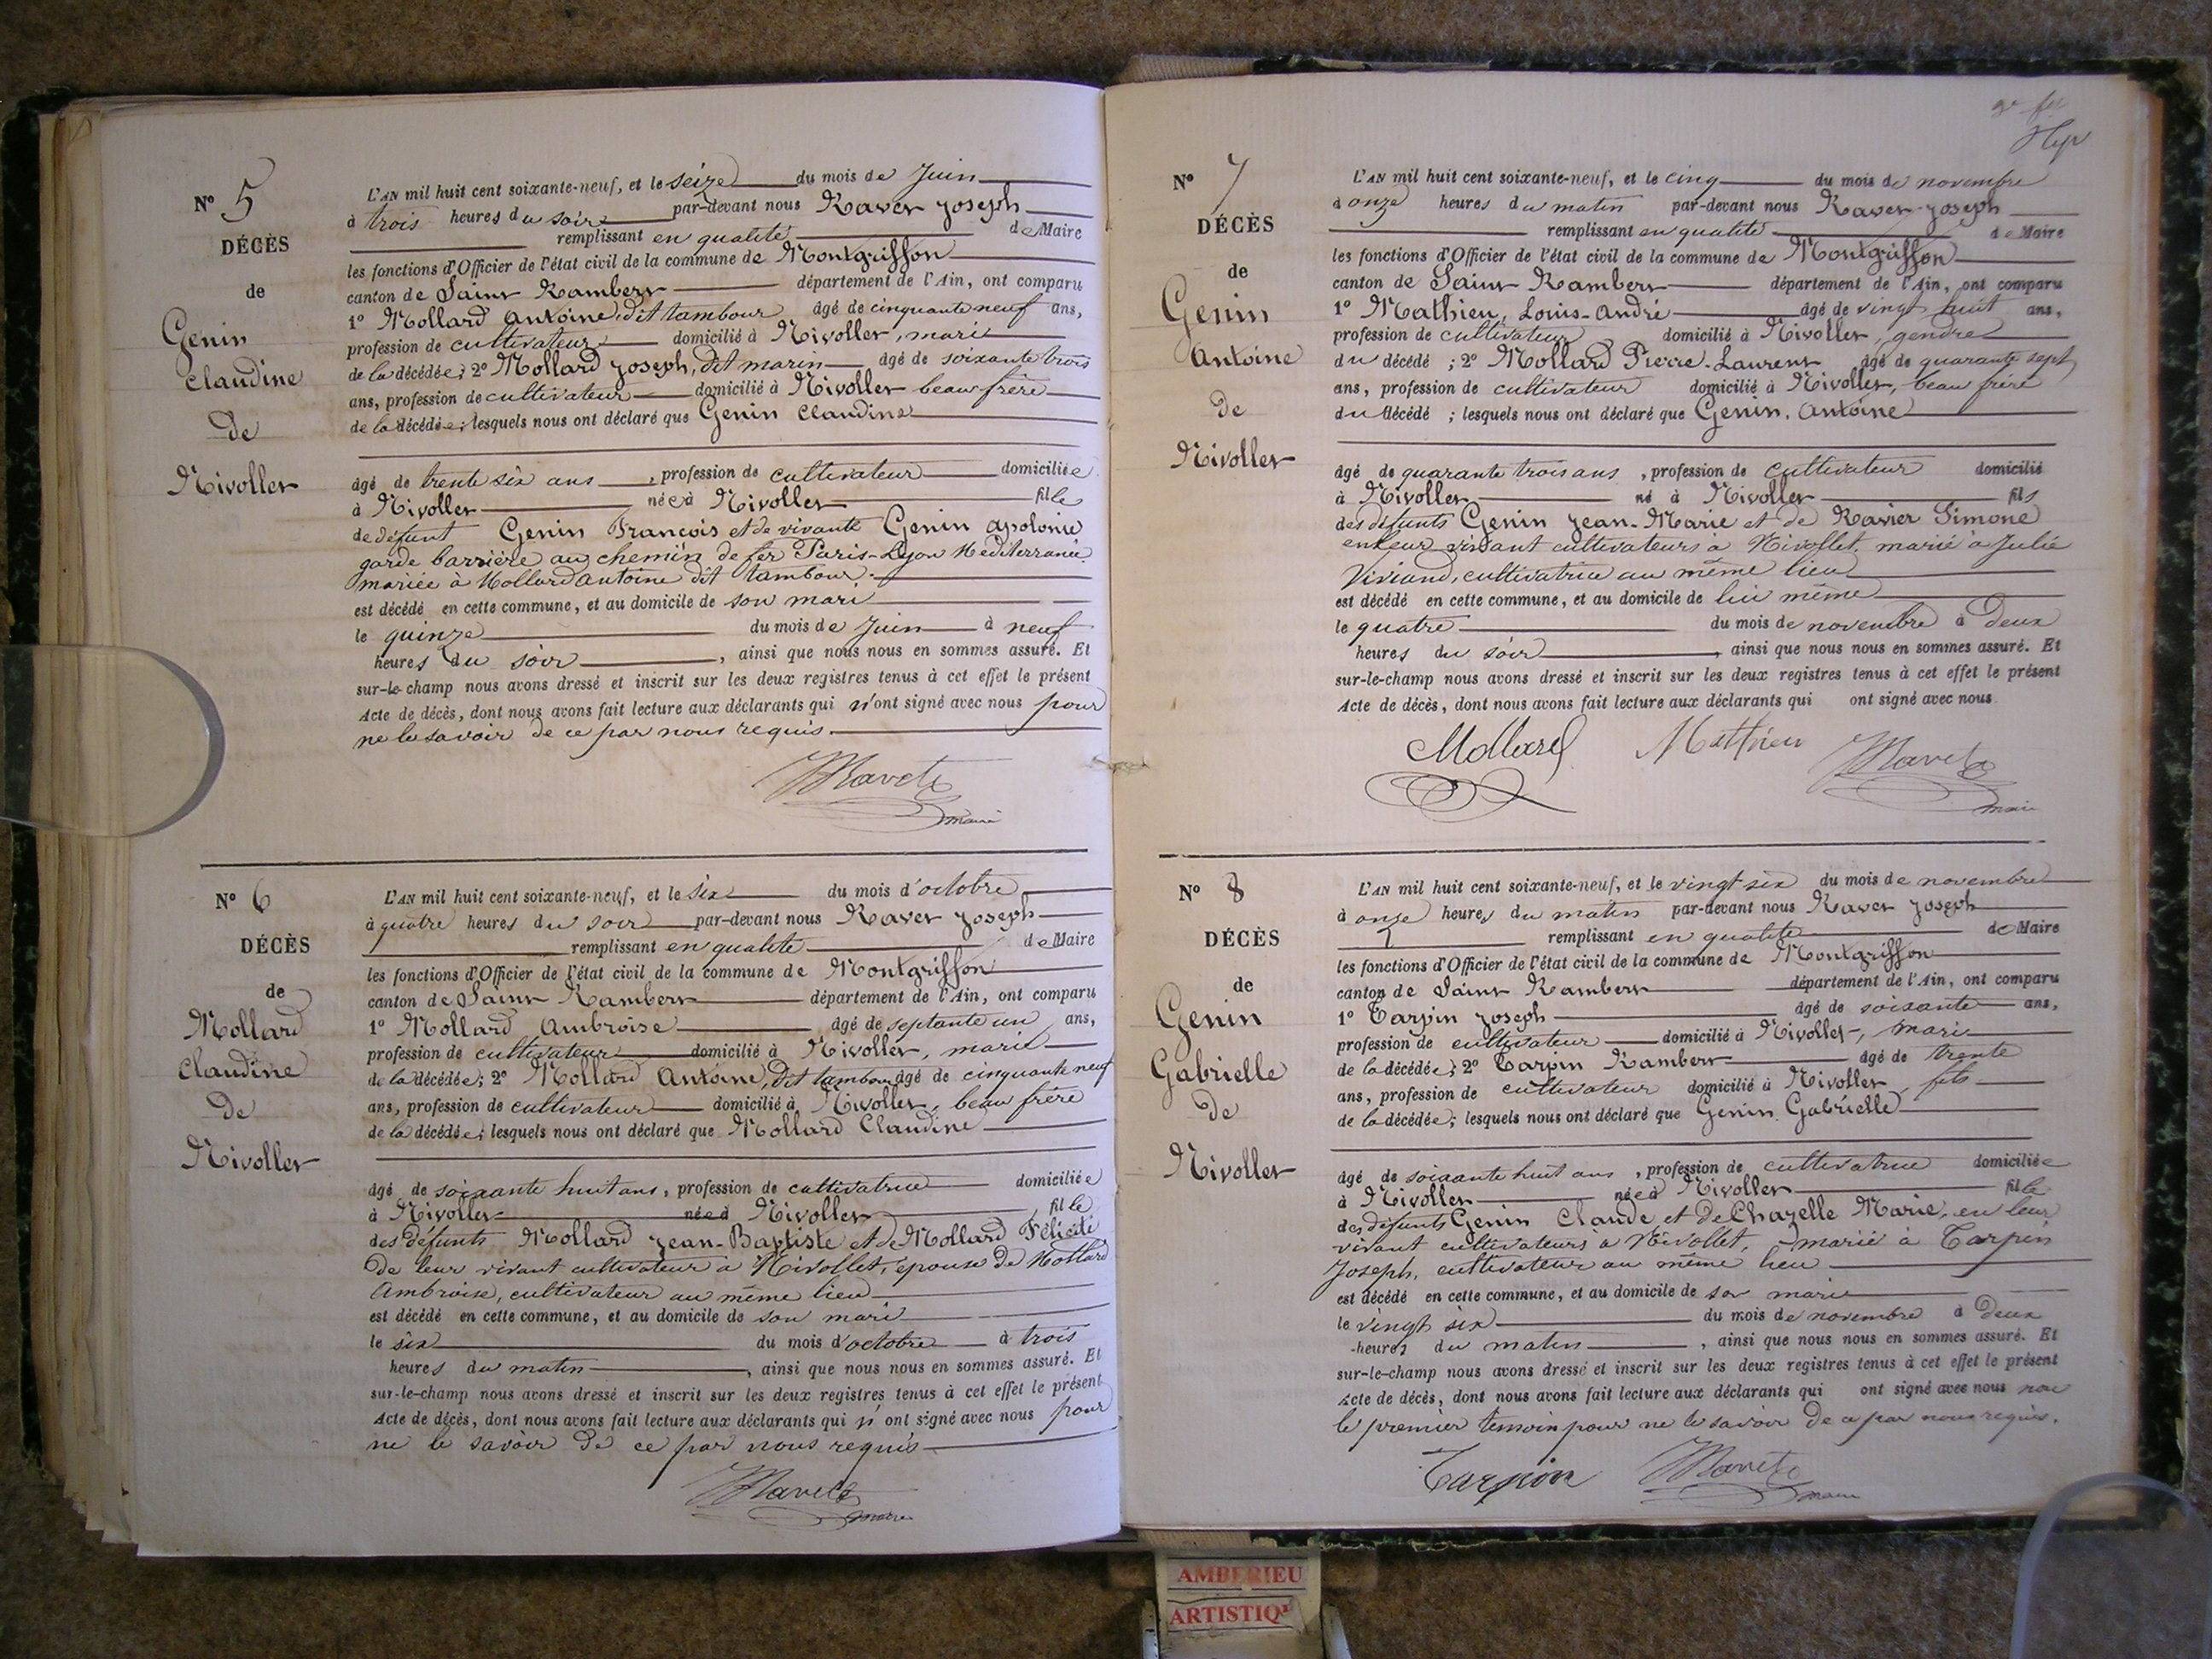 N° 5
DÉCÈS
de
Genin
Claudine
de
Nivollet
L'AN mil huit cent soixante-neuf, et le seize du mois de Juin
à trois heures du soir par-devant nous Ravet Joseph
remplissant en qualité de Maire
les fonctions d'Officier de l'état civil de la commune de Montgriffon
canton de Saint Rambert département de l'Ain, ont comparu
1° Mollard Antoine, dit tambour âgé de cinquante neuf ans,
profession de cultivateur domicilié à Nivollet, mari
de la décédée; 2° Mollard Joseph, dit marin âgé de soixante trois
ans, profession de cultivateur domicilié à Nivollet beau frère
de la décédée; lesquels nous ont déclaré que Genin Claudine
âgé de trente six ans, profession de cultivateur domiciliée
à Nivollet née à Nivollet fille
de défunt Genin François et de vivante Genin Apolonie
garde barrière au chemin de fer Paris-Lyon Mediterranée
mariée à Mollard Antoine dit tambour.
est décédé en cette commune, et au domicile de son mari
le quinze du mois de Juin à neuf
heures du soir, ainsi que nous nous en sommes assuré. Et
sur-le-champ nous avons dressé et inscrit sur les deux registres tenus à cet effet le présent
Acte de décès, dont nous avons fait lecture aux déclarants qui n'ont signé avec nous pour
ne le savoir de ce par nous requis.
Ravet
maire
N° 6
DÉCÈS
de
Mollard
Claudine
De
Nivollet
L'AN mil huit cent soixante-neuf, et le six du mois d'octobre
à quatre heures du soir par-devant nous Ravet Joseph
remplissant en qualité de Maire
les fonctions d'Officier de l'état civil de la commune de Montgriffon
canton de Saint Rambert département de l'Ain, ont comparu
1° Mollard Ambroise âgé de septante un ans,
profession de cultivateur domicilié à Nivollet, marié
de la décédée; 2° Mollard Antoine, dit tambour âgé de cinquante neuf
ans, profession de cultivateur domicilié à Nivollet, beau frère
de la décédée; lesquels nous ont déclaré que Mollard Claudine
âgé de soixante huit ans, profession de cultivatrice domiciliée
à Nivollet née à Nivollet fille
des défunts Mollard Jean-Baptiste et de Mollard Félicité
De leur vivant cultivateur à Nivollet, épouse de Mollard
Ambroise, cultivateur au même lieu
est décédé en cette commune, et au domicile de son mari
le six du mois d'octobre à trois
heures du matin, ainsi que nous nous en sommes assuré. Et
sur-le-champ nous avons dressé et inscrit sur les deux registres tenus à cet effet le présent
Acte de décès, dont nous avons fait lecture aux déclarants qui n'ont signé avec nous pour
ne le savoir de ce par nous requis
Ravet
maire
N° 7
DÉCÈS
de
Genin
Antoine
de
Nivollet
L'AN mil huit cent soixante-neuf, et le cinq du mois de novembre
à onze heures du matin par-devant nous Ravet Joseph
remplissant en qualité de Maire
les fonctions d'Officier de l'état civil de la commune de Montgriffon
canton de Saint Rambert département de l'Ain, ont comparu
1° Mathieu, Louis-André âgé de vingt huit ans,
profession de cultivateur domicilié à Nivollet, gendre
du décédé; 2° Mollard Pierre-Laurent âgé de quarante sept
ans, profession de cultivateur domicilié à Nivollet, beau frère
du décédé; lesquels nous ont déclaré que Genin, Antoine
âgé de quarante trois ans, profession de cultivateur domicilié
à Nivollet né à Nivollet fils
des défunts Genin Jean-Marie et de Ravier Simone
en leur vivant cultivateurs à Nivollet, marié à Julie
Viviand, cultivatrice au même lieu
est décédé en cette commune, et au domicile de lui même
le quatre du mois de novembre à Deux
heures du soir, ainsi que nous nous en sommes assuré. Et
sur-le-champ nous avons dressé et inscrit sur les deux registres tenus à cet effet le présent
Acte de décès, dont nous avons fait lecture aux déclarants qui ont signé avec nous
Mollard Mathieu Ravet
maire
N° 8
DÉCÈS
de
Genin
Gabrielle
De
Nivollet
L'AN mil huit cent soixante-neuf, et le vingt six du mois de novembre
à onze heures du matin par-devant nous Ravet Joseph
remplissant en qualité de Maire
les fonctions d'Officier de l'état civil de la commune de Montgriffon
canton de Saint Rambert département de l'Ain, ont comparu
1° Tarpin Joseph âgé de soixante ans,
profession de cultivateur domicilié à Nivollet, mari
de la décédée; 2° Tarpin Rambert âgé de trente
ans, profession de cultivateur domicilié à Nivollet, fils
de la décédée; lesquels nous ont déclaré que Genin Gabrielle
âgé de soixante huit ans, profession de cultivatrice domiciliée
à Nivollet née à Nivollet fille
des défunts Genin Claude et de Chazelle Marie, en leur
vivant cultivateurs à Nivollet, marié à Tarpin
Joseph, cultivateur au même lieu
est décédé en cette commune, et au domicile de son mari
le vingt six du mois de novembre à deux
heures du matin, ainsi que nous nous en sommes assuré. Et
sur-le-champ nous avons dressé et inscrit sur les deux registres tenus à cet effet le présent
Acte de décès, dont nous avons fait lecture aux déclarants qui ont signé avec nous non
le premier temoin pour ne le savoir de ce par nous requis.
Tarpin Ravet
maire
AMBERIEU
ARTISTIQ